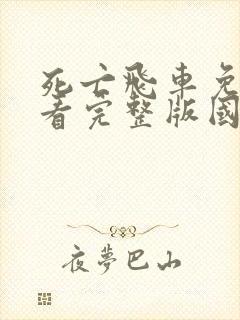 死亡飛車免
看完整版國
夜夢巴山